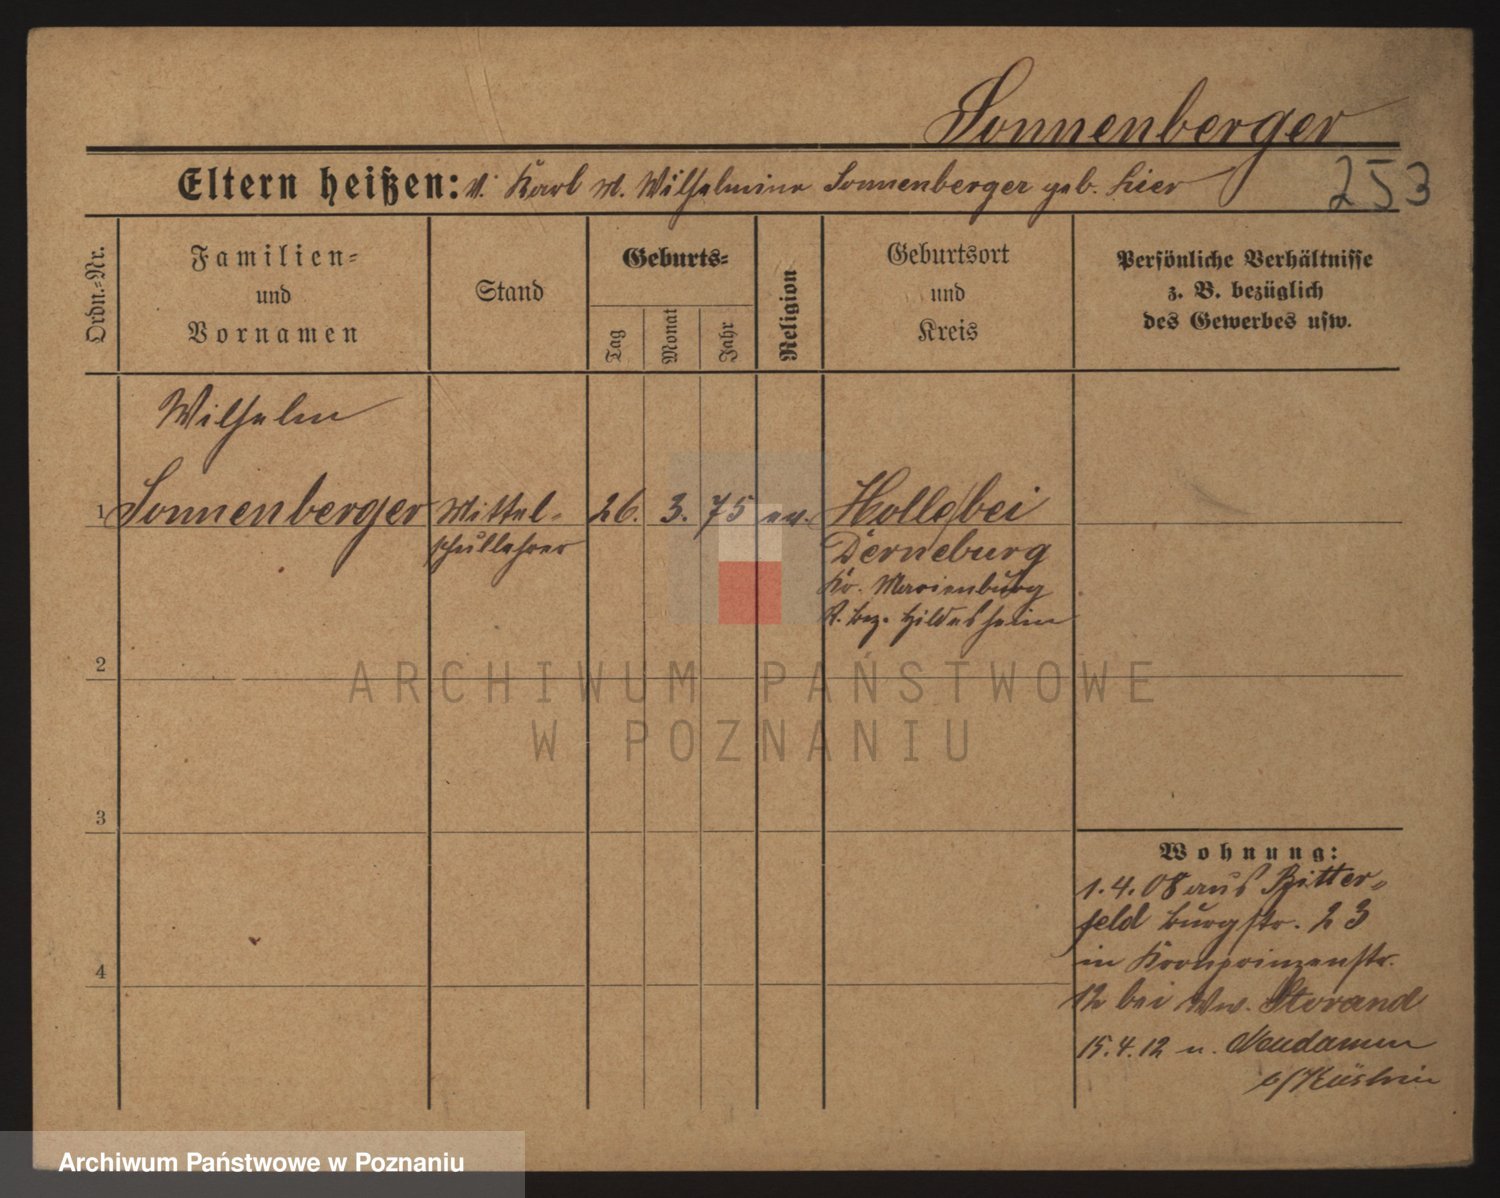 Sonnenberger
Eltern heißen: V. Karl M. Wilhelmine Sonnenberger geb. hier
253
Ordn.-Nr.
Familien-
und
Vornamen
Stand
Geburts-
Tag
Monat
Jahr
Religion
Geburtsort
und
Kreis
Persönliche Verhältnisse
z. B. bezüglich
des Gewerbes usw.
Wilhelm
1 Sonnenberger Mittel- 26. 3. 75 ev. Holle bei
schullehrer Derneburg
Kr. Marienburg
R. Bez. Hildesheim
2
3
4
Wohnung:
1.4.08 aus Bitter-
feld Burgstr. 23
in Kronprinzenstr.
12 bei Ww. Storand
15.4.12 n. Neudamm
b/Küstrin
ARCHIWUM PAŃSTWOWE
W POZNANIU
Archiwum Państwowe w Poznaniu